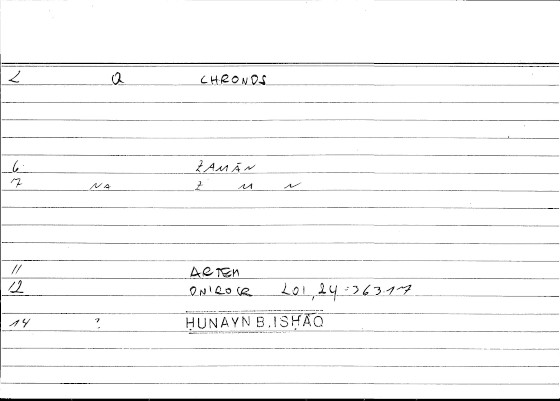 2 Q CHRONOS
6 ZAMĀN
7 NA Z M N
11 ARTEM
12 ONIROCR 201,24 = 363 17
14 ? ḤUNAYN B. ISḤĀQ